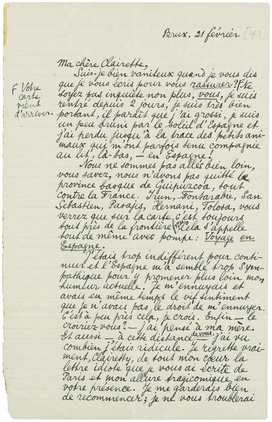 Brux. 21 février
Ma chère Clairette,
Suis-je bien vaniteux quand je vous dis
que je vous écris pour vous rassurer? Ne
F Votre
carte
vient
d'arriver.
soyez pas inquiète non plus, vous, je suis
rentré depuis 2 jours, je suis très bien
portant, il paraît que j'ai grossi, je suis
un peu bruni par le soleil d'Espagne et
j'ai perdu jusqu'à la trace des petits ani-
maux qui m'ont parfois tenu compagnie
au lit, là-bas, — en Espagne!
Nous ne sommes pas allés bien loin,
vous savez, nous n'avons pas quitté la
province basque de Guipuzcoa, tout
contre la France. Irun, Fontarabie, San
Sébastien, Pasajes, Hernani, Tolosa, vous
verrez que sur la carte c'est toujours
tout près de la frontière. Cela s'appelle
tout de même avec pompe: Voyage en
Espagne.
J'étais trop indifférent pour conti-
nuer et l'Espagne m'a semblé trop sym-
pathique pour y promener plus loin mon
humeur actuelle. Je m'ennuyais et
avais en même temps le vif sentiment
que je n'avais pas le droit de m'ennuyer.
C'est à peu près cela, je crois. Enfin — le
croiriez-vous? — j'ai pensé à ma mère.
Et aussi — à cette distance — j'ai vu
combien j'étais ridicule. Je regrette vrai-
ment, Clairette, de tout mon cœur la
lettre idiote que je vous ai écrite de
Paris et mon allure tragicomique en
votre présence. Je me garderais bien
de recommencer; je ne vous troublerai